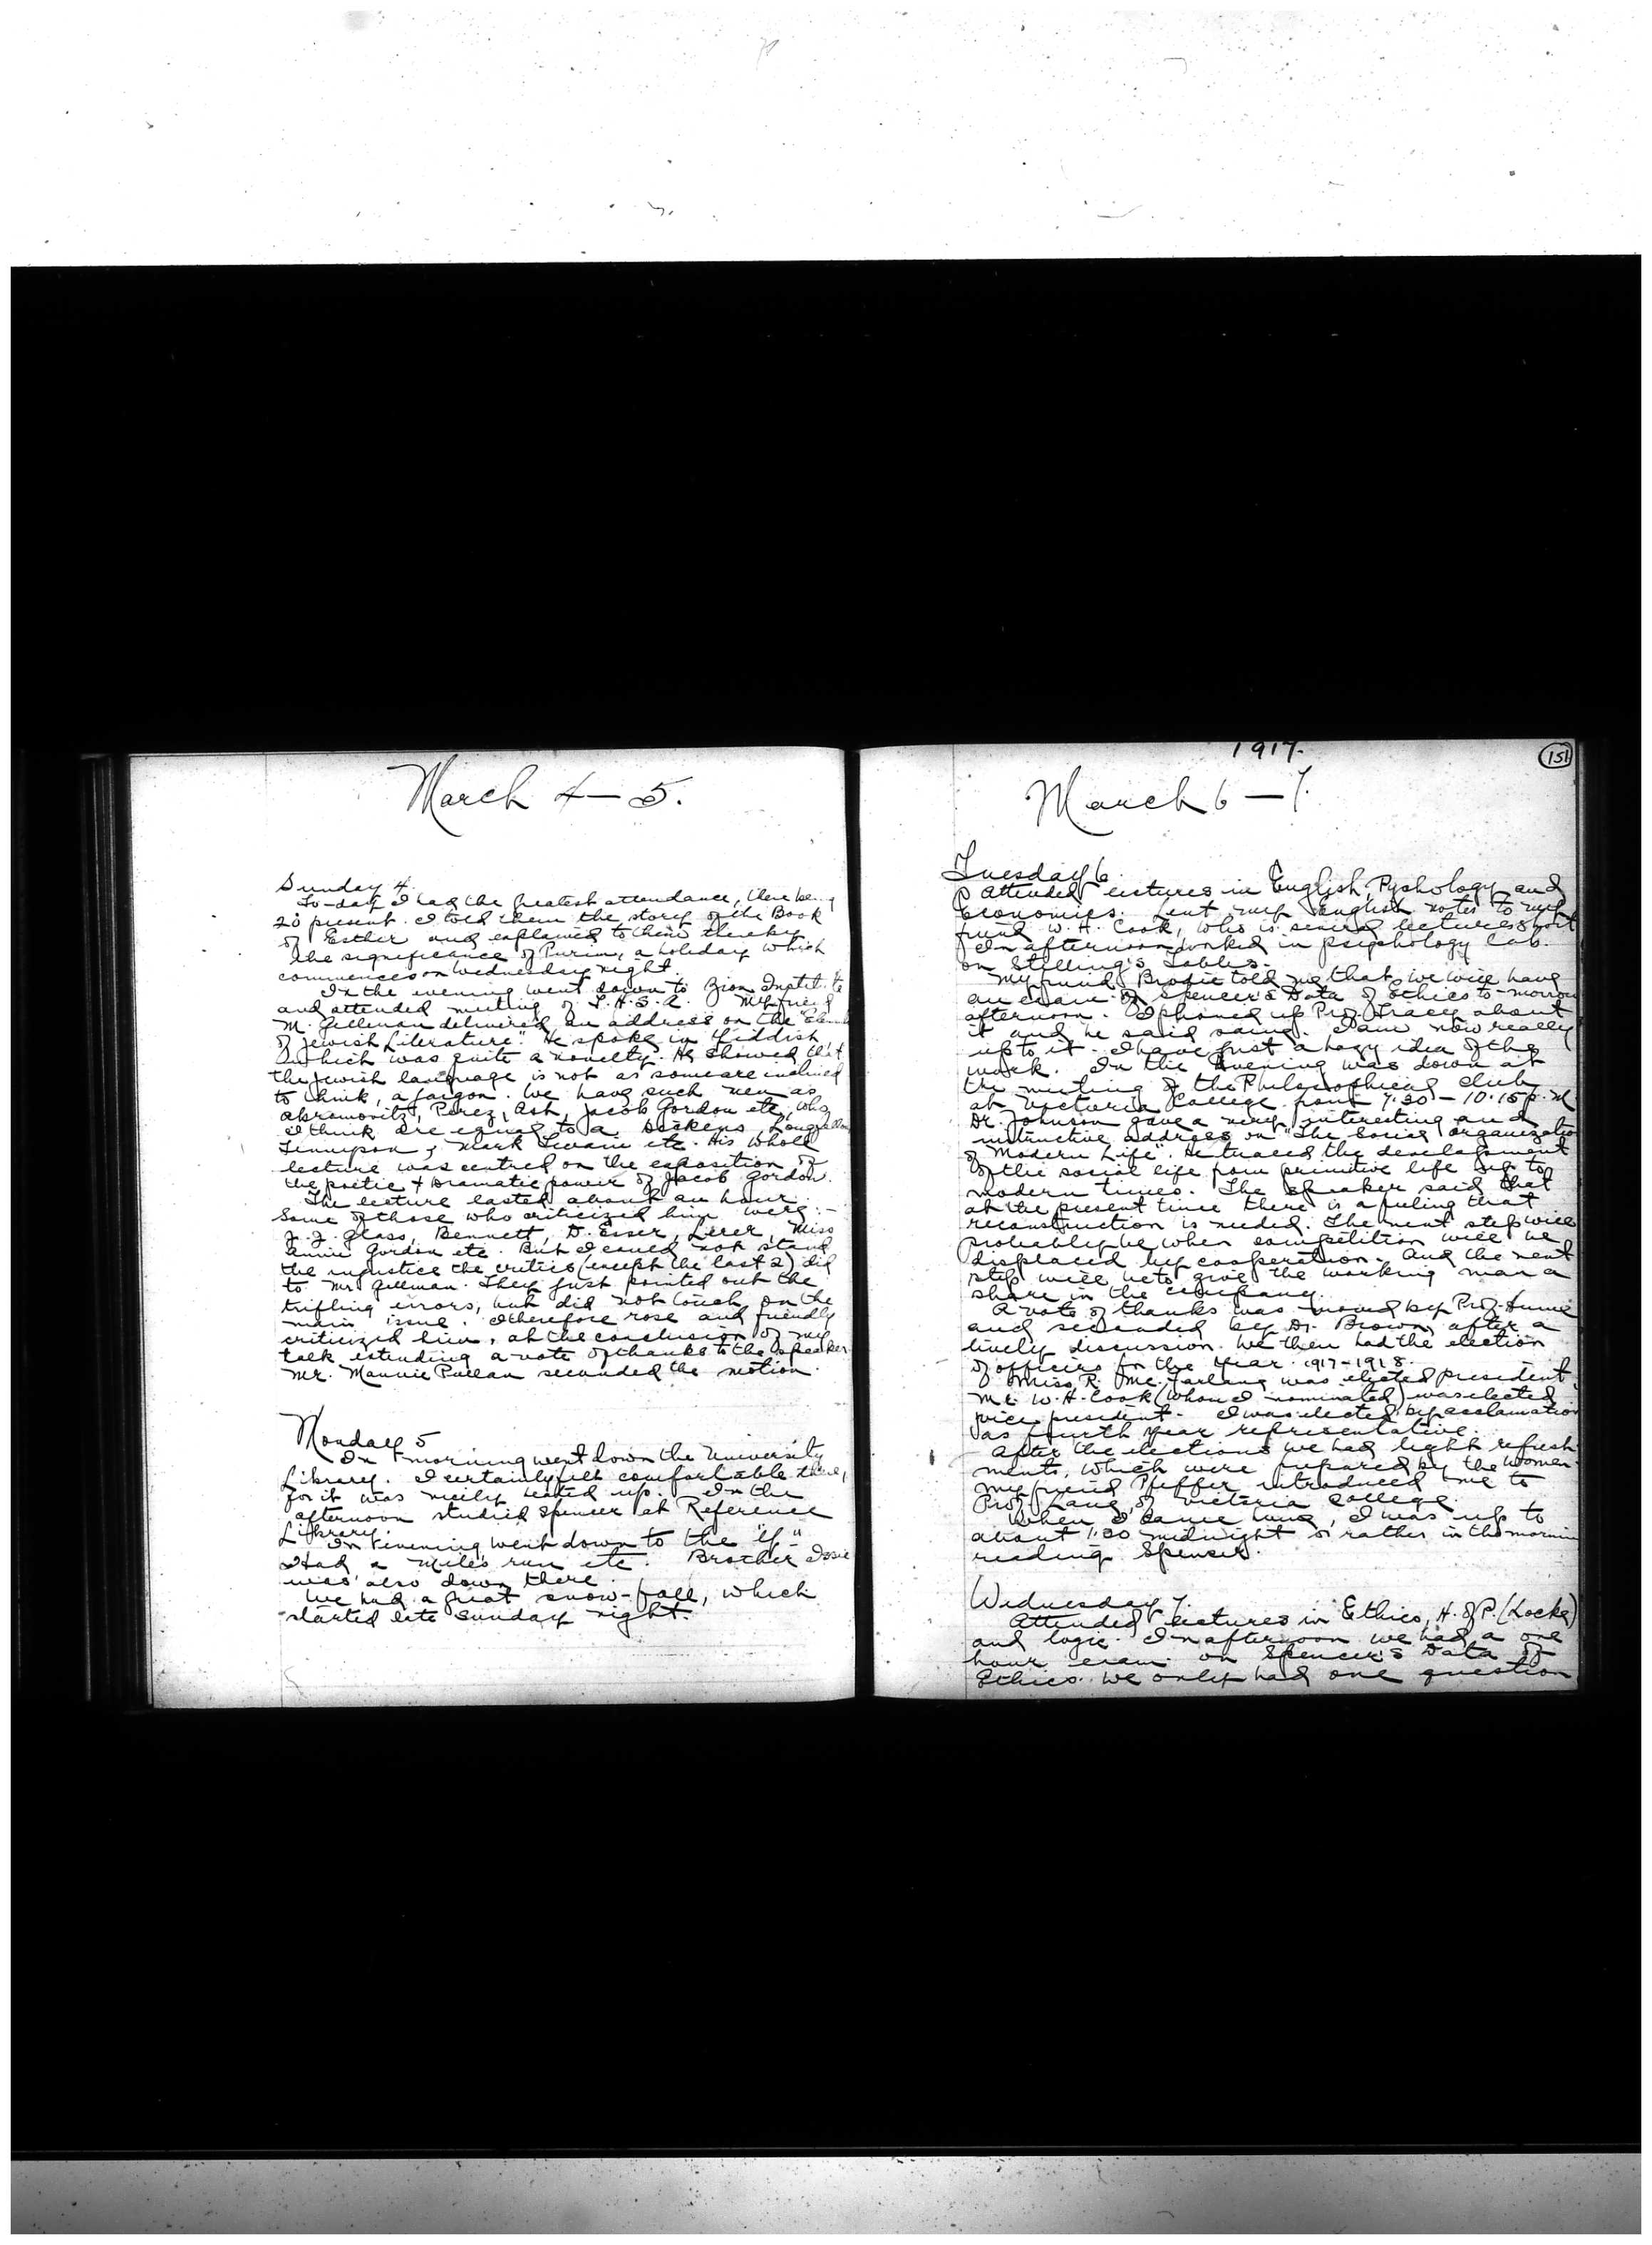 March 4-5.
Sunday 4.
To-day I had the greatest attendance, there being
20 present. I told them the story of the Book
of Esther and explained to them thereby
the significance of Purim, a holiday which
commences on Wednesday night.
In the evening went down to Zion Institute
and attended meeting of L.H.S.A. My friend
M. Gelleman delivered an address on the
of Jewish Literature." He spoke in Yiddish
which was quite a novelty. He showed that
the Jewish language is not as some are inclined
to think, a jargon. We have such men as
Abramovitz, Perez, Ash, Jacob Gordon etc., who
I think are equal to a Dickens, Longfellow
Tennyson, Mark Twain etc. His whole
lecture was centred on the exposition of
the poetic + dramatic power of Jacob Gordon.
The lecture lasted about an hour.
Some of those who criticized him were:-
J.J. Glass, Bennett, D. Eiser, Lerer, Miss
Annie Gordon etc. But I could not stand
the injustice the critics (except the last 2) did
to Mr Gelleman. They just pointed out the
trifling errors, but did not touch on the
main issue. I therefore rose and friendly
criticized him, at the conclusion of my
talk extending a vote of thanks to the speaker.
Mr. Mannie Pullan seconded the motion.
Monday 5
In morning went down the University
Library. I certainly felt comfortable there,
for it was nicely heated up. In the
afternoon studied Spencer at Reference
Library.
In evening went down to the "Y"
Had a mile's run etc. Brother Issie
was also down there.
We had a great snow-fall, which
started late Sunday night.
1917.
151
March 6-7.
Tuesday 6.
Attended lectures in English, Pychology and
Economics. Lent my English notes to my
friend W.H. Cook, who is several lectures short
In afternoon worked in psychology lab.
on Stilling's Tables.
My friend Brodie told me that we will have
an exam. of Spencer's Data of Ethics to-morrow
afternoon. I phoned up Prof. Tracy about
it and he said saing. I am now really
up to it. I have just a hazy idea of the
work. In the evening was down at
the meeting of the Philosophical Club
at Victoria College from 7.30 - 10.15 p.m
Dr. Johnson gave a very interesting and
instructive address on "The Social Organization
of Modern Life". He traced the development
of the social life from primitive life up to
modern times. The speaker said that
at the present time there is a feeling that
reconstruction is needed. The next step will
probably be when competition will be
displaced by cooperation. And the next
step will be to give the working man a
share in the company.
A vote of thanks was moved by Prof. Hume
and seconded by Dr. Brown, after a
lively discussion. We then had the election
of officers for the year 1917-1918.
Miss R. Mc. Farlang was elected president,
Mr. W.H. Cook (whom I nominated) was elected
vice president. I was elected by acclamation
as fourth year representative.
After the elections we had light refresh-
ments, which were prepared by the women.
My friend Pfeffer introduced me to
Prof. Lang, of Victoria College.
When I came home, I was up to
about 1.30 midnight or rather in the morning
reading Spenser.
Wednesday 7.
Attended lectures in Ethics, H. of P. (Locke)
and logic. In afternoon we had a one
hour exam. on Spencer's Data of
Ethics. We only had one question